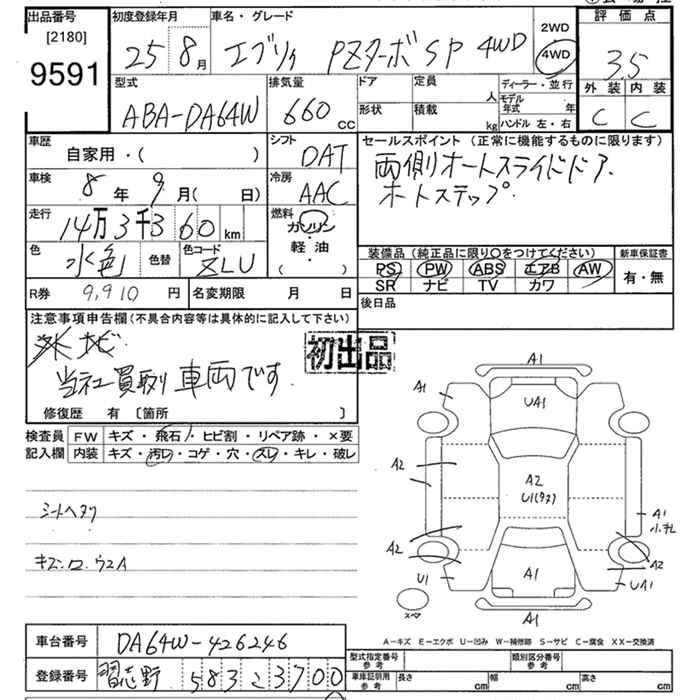 出品番号
[2180]
9591
初度登録年月
25 8月
車名・グレード
エブリィ PZターボSP 4WD
2WD
4WD
評価点
3.5
外装 内装
C C
型式
ABA-DA64W
排気量
660 cc
ドア
形状
定員 人
積載 kg
ディーラー・並行
モデル年式 年
ハンドル 左・右
車歴
自家用・( )
シフト
DAT
車検
8年 9月( 日)
冷房
AAC
走行
14万3千360 km
燃料
ガソリン
・
軽・油
( )
色
水色
色替
色コード
ZLU
セールスポイント (正常に機能するものに限ります)
両側オートスライドドア.
オートステップ
装備品 (純正品に限り○をつけてください)
PS PW ABS エアB AW
SR ナビ TV カワ
新車保証書
有・無
R券 9,910 円
名変期限 月 日
後日品
注意事項申告欄(不具合内容等は具体的に記入して下さい)
当社買取り車両です.
初出品
修復歴 有 〔箇所 〕
検査員記入欄
FW キズ・飛石・ヒビ割・リペア跡・×要
内装 キズ・汚レ・コゲ・穴・スレ・キレ・破レ
シートヘタリ
A1
A1
UA1
A2
A2
U1(タヌ)
A1
小キレ
A2
A2
U1
A1
UA1
スペア
A1
A-キズ E-エクボ U-凹み W-補修跡 S-サビ C-腐食 XX-交換済
車台番号 DA64W-426246
登録番号 習志野 583 こ 3700
型式指定番号 参考
類別区分番号 参考
車庫証明用 参考
長さ cm
幅 cm
高さ cm